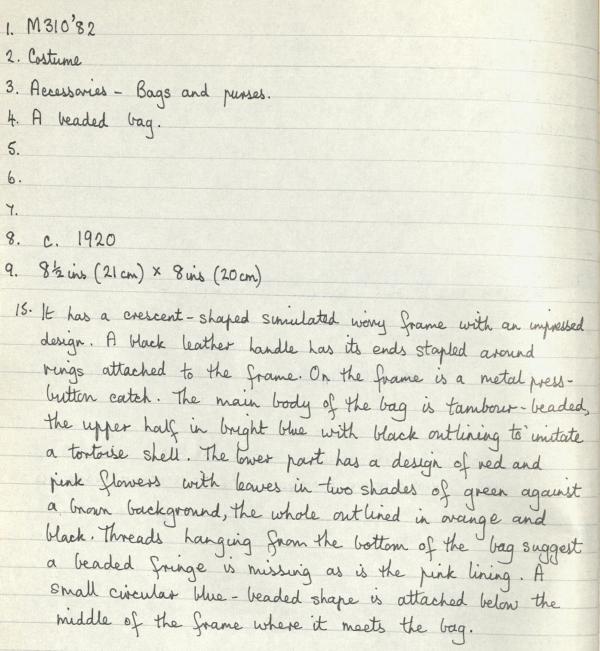 1. M310'82
2. Costume
3. Accessories - Bags and purses.
4. A beaded bag.
5.
6.
7.
8. c. 1920
9. 8½ ins (21cm) × 8 ins (20cm)
15. It has a crescent-shaped simulated ivory frame with an impressed
design. A black leather handle has its ends stapled around
rings attached to the frame. On the frame is a metal press-
button catch. The main body of the bag is tambour-beaded,
the upper half in bright blue with black outlining to imitate
a tortoise shell. The lower part has a design of red and
pink flowers with leaves in two shades of green against
a brown background, the whole outlined in orange and
black. Threads hanging from the bottom of the bag suggest
a beaded fringe is missing as is the pink lining. A
small circular blue-beaded shape is attached below the
middle of the frame where it meets the bag.